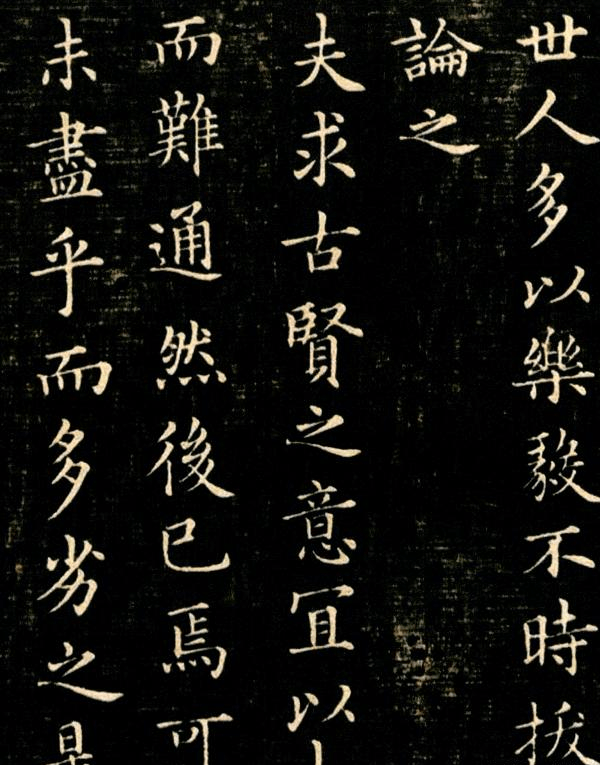 世人多以樂毅不時拔
論之
夫求古賢之意宜以
而難通然後已焉可
未盡乎而多劣之是